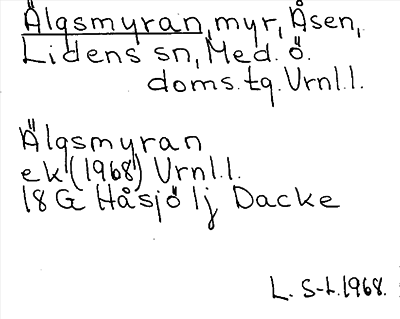 Älgsmyran, myr, Åsen,
Lidens sn, Med. ö.
doms. tg. Vrnl. l.
Älgsmyran
ek (1968) Vrnl. l.
18 G Håsjö 1j Dacke
L. S-L. 1968.